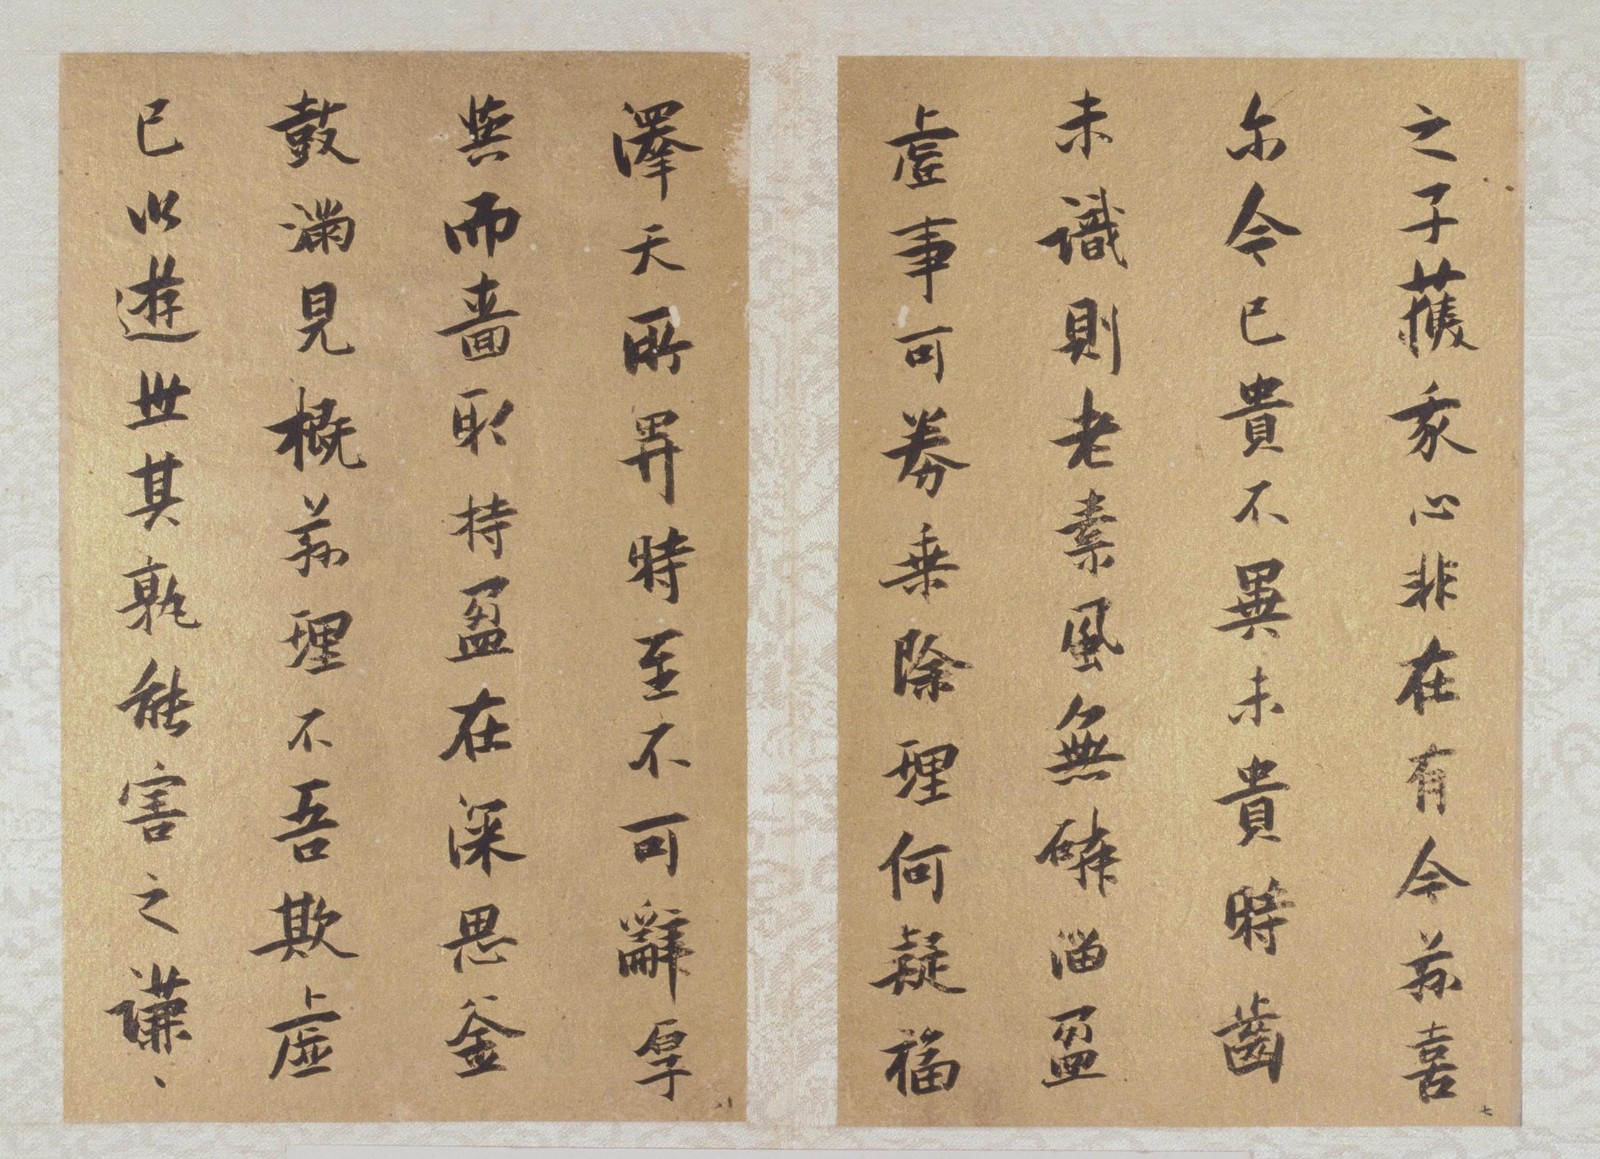 之子獲我心非在有今茲喜
尓今已貴不異未貴時齒
未識則老素風無磷淄盈
虛事可券乘除理何疑福
七
澤天所畀時至不可辭厚
與而嗇取持盈在深思釜
鼓滿見概茲理不吾欺虛
己以遊世其孰能害之謙、
八